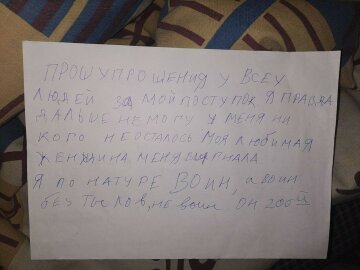 ПРОШУ ПРОШЕНИЯ У ВСЕУ
ЛЮДЕЙ ЗА МОЙ ПОСТУПОК Я ПРАВДА
ДАЛЬШЕ НЕ МОГУ У МЕНЯ НИ
КОГО НЕ ОСТАЛОСЬ МОЯ ЛЮБИМАЯ
ЖЕНЩИНА МЕНЯ ВЫГНАЛА
Я ПО НАТУРЕ ВОИН, А ВОИН
БЕЗ ТЫЛОВ, НЕ ВОИН ОН 200Й